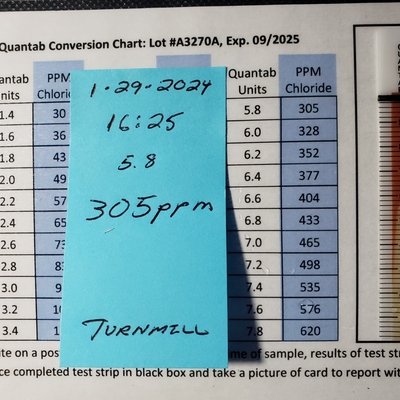 Quantab Conversion Chart: Lot #A3270A, Exp. 09/2025
Quantab Units PPM Chloride Quantab Units PPM Chloride
1.4 30 5.8 305
1.6 36 6.0 328
1.8 43 6.2 352
2.0 49 6.4 377
2.2 57 6.6 404
2.4 65 6.8 433
2.6 73 7.0 465
2.8 7.2 498
3.0 7.4 535
3.2 7.6 576
3.4 7.8 620
1-29-2024
16:25
5.8
305ppm
TURNMILL
on a me of sample, results of test
completed test strip in black box and take a picture of card to report